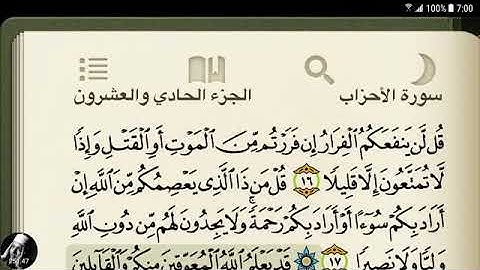 100% 7:00
سورة الأحزاب الجزء الحادي والعشرون
قُل لَّن يَنفَعَكُمُ الْفِرَارُ إِن فَرَرْتُم مِّنَ الْمَوْتِ أَوِ الْقَتْلِ وَإِذًا
لَّا تُمَتَّعُونَ إِلَّا قَلِيلًا ١٦ قُلْ مَن ذَا الَّذِي يَعْصِمُكُم مِّنَ اللَّهِ إِنْ
أَرَادَ بِكُمْ سُوءًا أَوْ أَرَادَ بِكُمْ رَحْمَةً ۚ وَلَا يَجِدُونَ لَهُم مِّن دُونِ اللَّهِ
وَلِيًّا وَلَا نَصِيرًا ١٧ قَدْ يَعْلَمُ اللَّهُ الْمُعَوِّقِينَ مِنكُمْ وَالْقَائِلِينَ